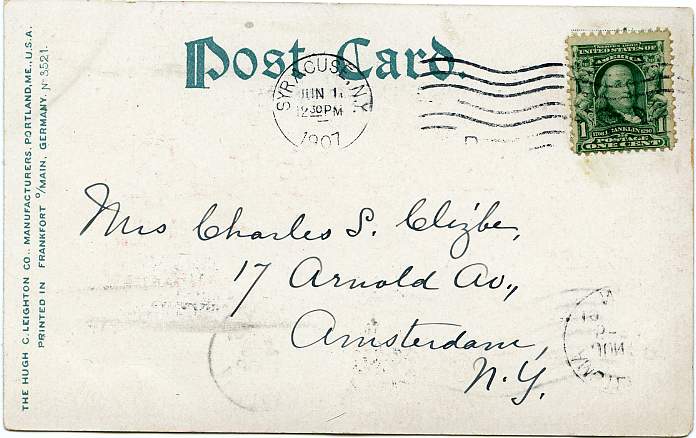 THE HUGH C. LEIGHTON CO., MANUFACTURERS, PORTLAND, ME., U.S.A.
PRINTED IN FRANKFORT o/MAIN, GERMANY. No 3521.
Post Card.
SYRACUSE, N.Y.
JUN 1
12 30 PM
1907
UNITED STATES OF
AMERICA
1 FRANKLIN 1
POSTAGE
ONE CENT
Mrs Charles S. Clizbe,
17 Arnold Av.,
Amsterdam,
N.Y.
JUN